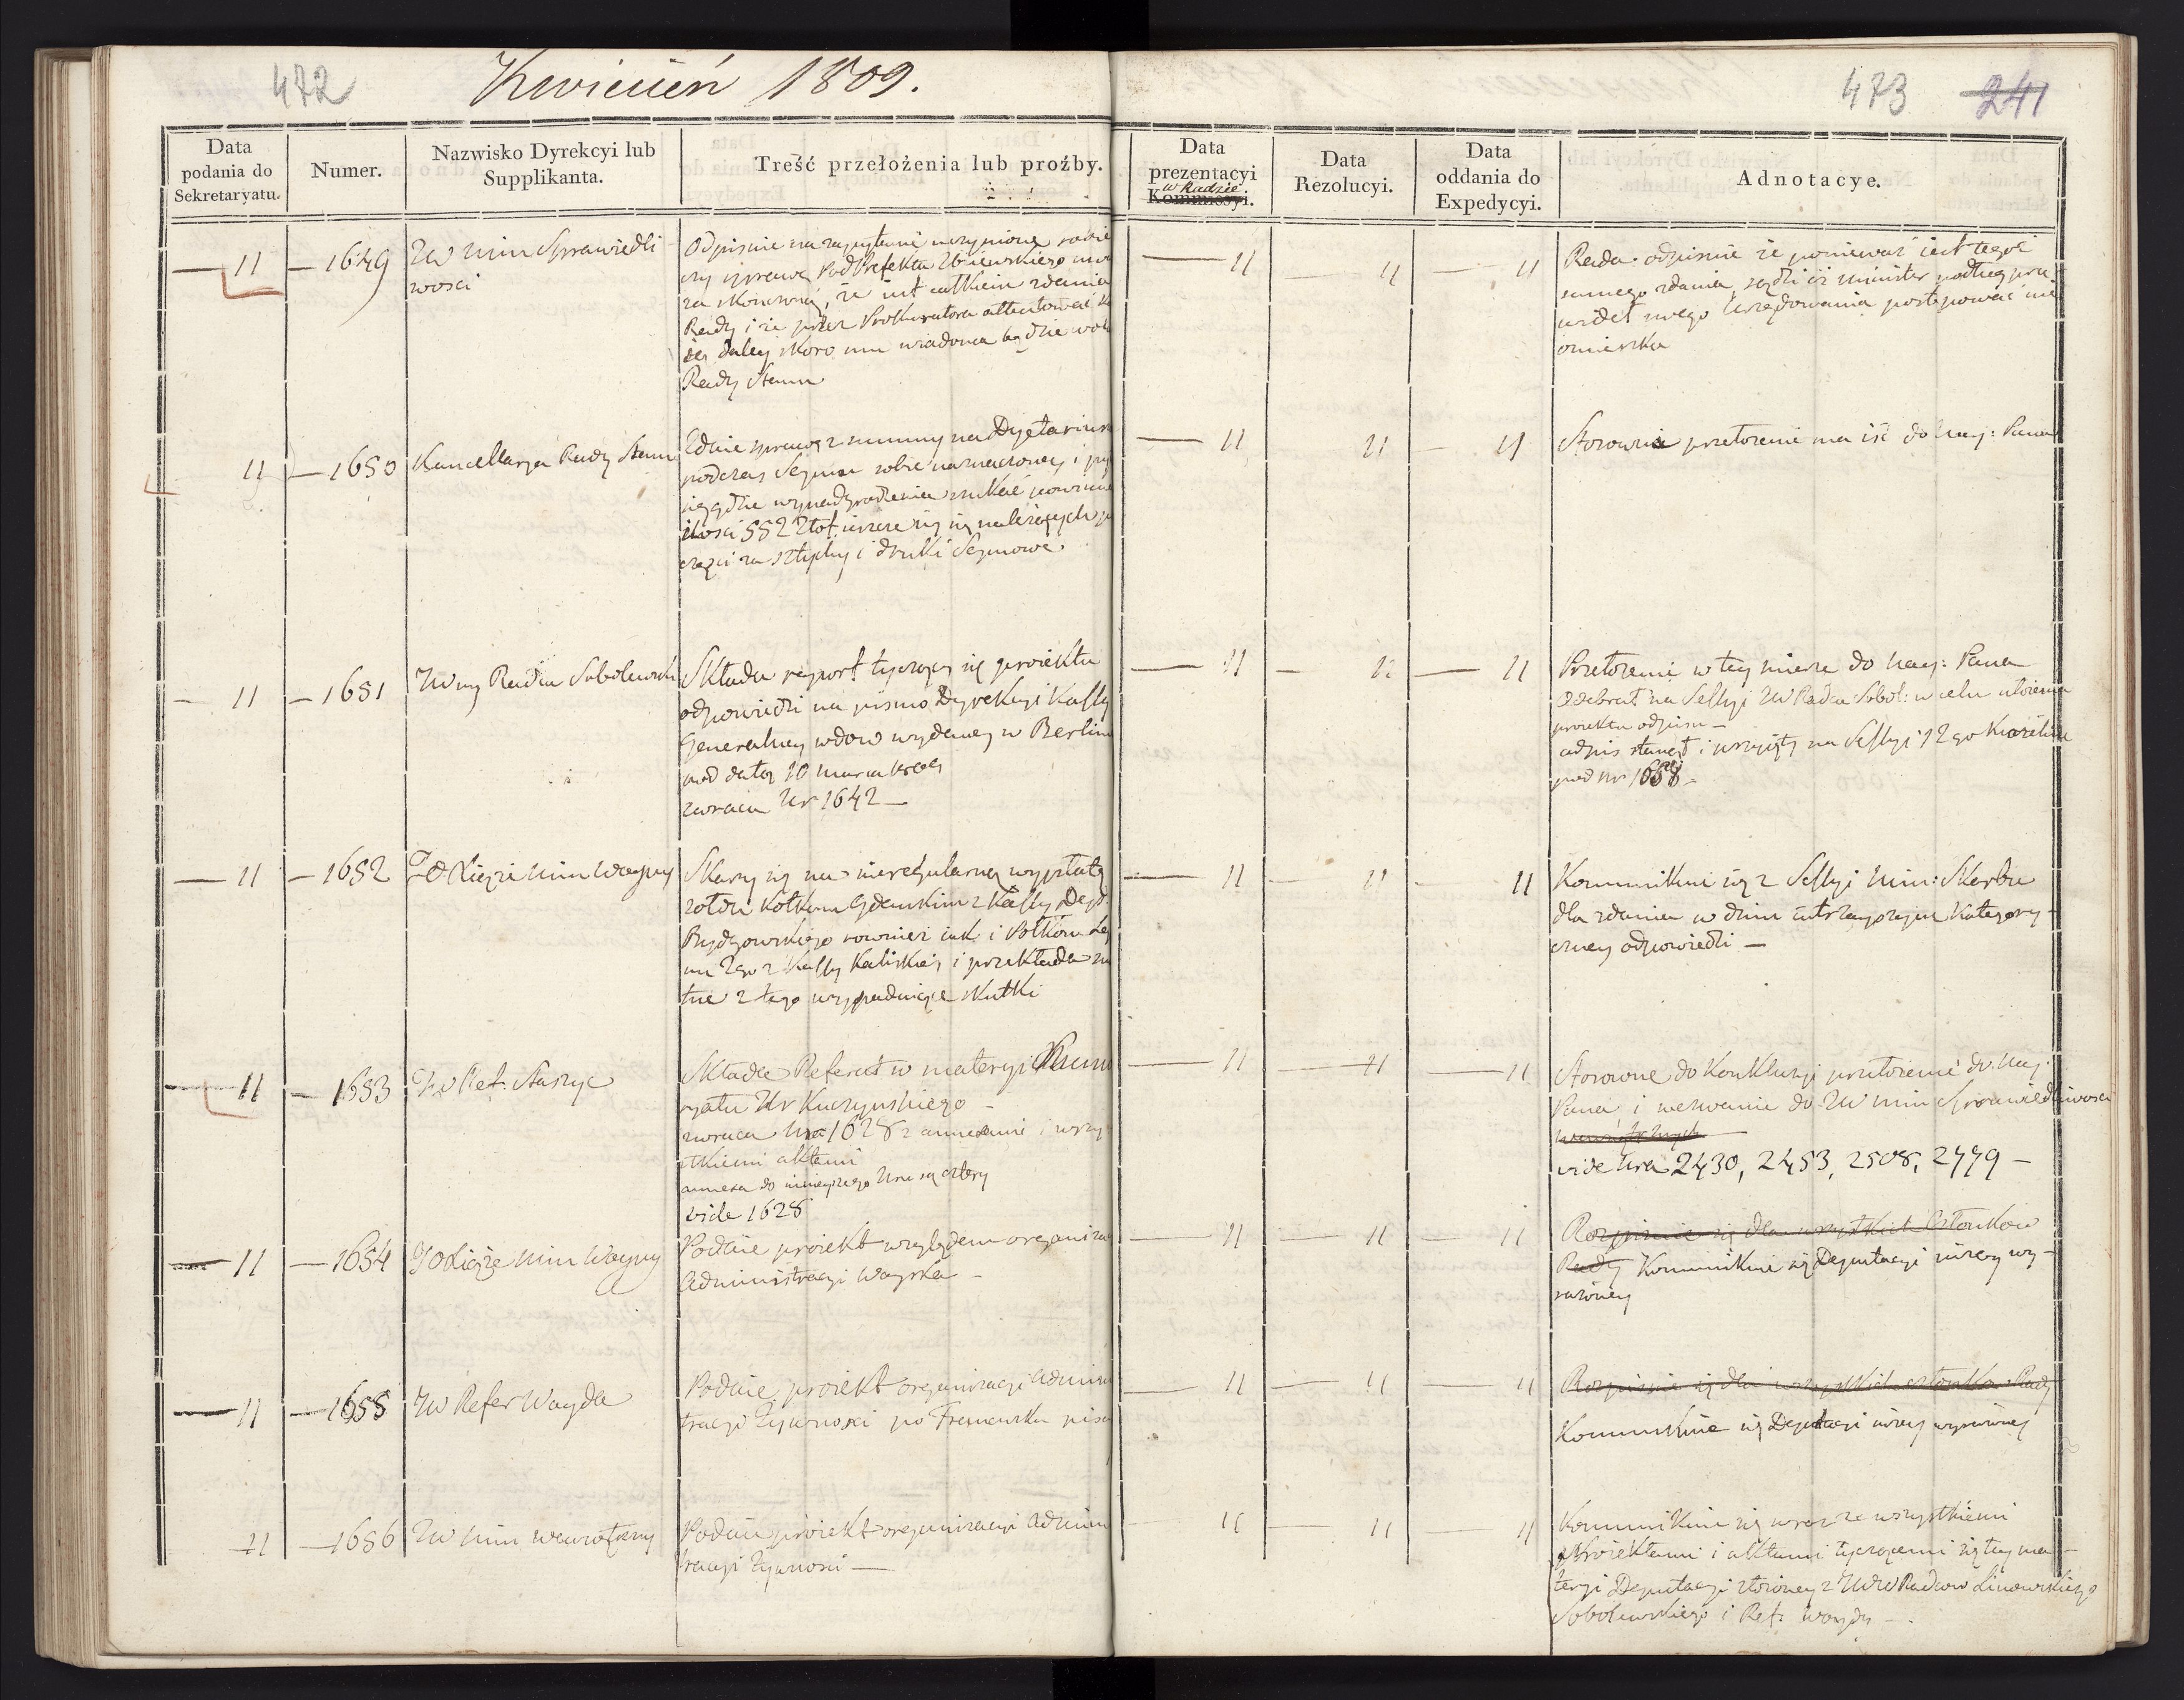 472
Kwiecień 1809.
473 241
Data podania do Sekretaryatu.
Numer.
Nazwisko Dyrekcyi lub Supplikanta.
Treść przełożenia lub proźby.
Data prezentacyi w Radzie Kommissyi.
Data Rezolucyi.
Data oddania do Expedycyi.
Adnotacye.
— 11 — 1649 JW Min Sprawiedli
wosci
Odpisuie na zapytanie uczynione sobie
czy sprawę PodPrefekta
za skonczoną, że iest całkiem zdania
Rady i że przez Prokuratora attentować
daley skoro mu wiadoma będzie wola
Rady Stanu
— 11 — 11 — 11
Rada odpisuie że ponieważ iest tegoż
samego zdania, sądzi iż Minister podług pra
wideł swego Urzędowania postępować nie
omieszka
11 — 1650 Kancellarya Rady Stanu
Zdaie sprawę z summy na Dyetariuszow
podczas Seymu sobie naznaczoney i
gdzie wynadgrodzenia szukać powinna
ilosci 552 Złot. ieszcze się iey należących
za sztychy i druki Seymowe
— 11 11 — 11
Stosownie przełożenie ma iść do Nay: Pana
— 11 — 1651 JW Radca Sobolewski
Składa raport tyczący się proiektu
odpowiedzi na pismo Dyrekcyi Kassy
Generalney wdow wydaney w Berlinie
pod datą 10 marca
zwraca Nr 1642 —
— 11 — 11 — 11
Przełożenie w tey mierze do Nay: Pana
odebrał na Sessyi JW Radca Sobol: w celu ułożenia
proiektu odpisu —
odpis stanął i przyięty na Sessyi 12go Kwietnia
pod Nr 1668 —
— 11 — 1652 JO Xiąże Min Woyny
Skarży się na nieregularną wypłatę
żołdu Półkom Gdanskim z Kassy Dep.
Bydgowskiego rownież iak i Półkom
2go z Kassy Kaliskiey i przekłada
z tego wypadaiące skutki
— 11 — 11 — 11
Kommunikuie się z Sessyi Min: Skarbu
dla zdania w dniu iutrzeyszym Kategory-
czney odpowiedzi —
— 11 — 1653 JW Ref: Staszyc
Składa Referat w materyi
Kuczynskiego —
zwraca Nra 1628 z annexami i wszy
stkiemi aktami
annexa do ninieyszego Nru są cztery
vide 1628
— 11 — 11 — 11
Stosowne do Konkluzyi przełożenie do Nay:
Pana i wezwanie do JW Min Sprawiedliwosci
wewnętrznych
vide Nra 2430, 2453, 2508, 2779 —
— 11 — 1654 JO Xiąże Min Woyny
Podaie proiekt względem organiza
Administracyi Woyska —
— 11 — 11 — 11
Rozpisuie się dla wszystkich Członkow
Rady Kommunikuie się Deputacyi niżey wy-
rażoney
— 11 — 1655 JW Refer Wayda
Podaie proiekt organizacyi Admini
stracyi Żywnosci po Francusku
— 11 — 11 — 11
Rozpisuie się dla wszystkich członkow Rady
Kommunikuie się Deputacyi niżey wyrażoney
11 — 1656 JW Min Wewnętrzny
Podaie proiekt organizacyi Admini
stracyi żywnosci —
— 11 — 11 — 11
Kommunikuie się wraz ze wszystkiemi
Proiektami i aktami tyczącemi się tey ma-
teryi Deputacyi złożoney z JWW Radcow Linowskiego
Sobolewskiego i Ref: Waydy —